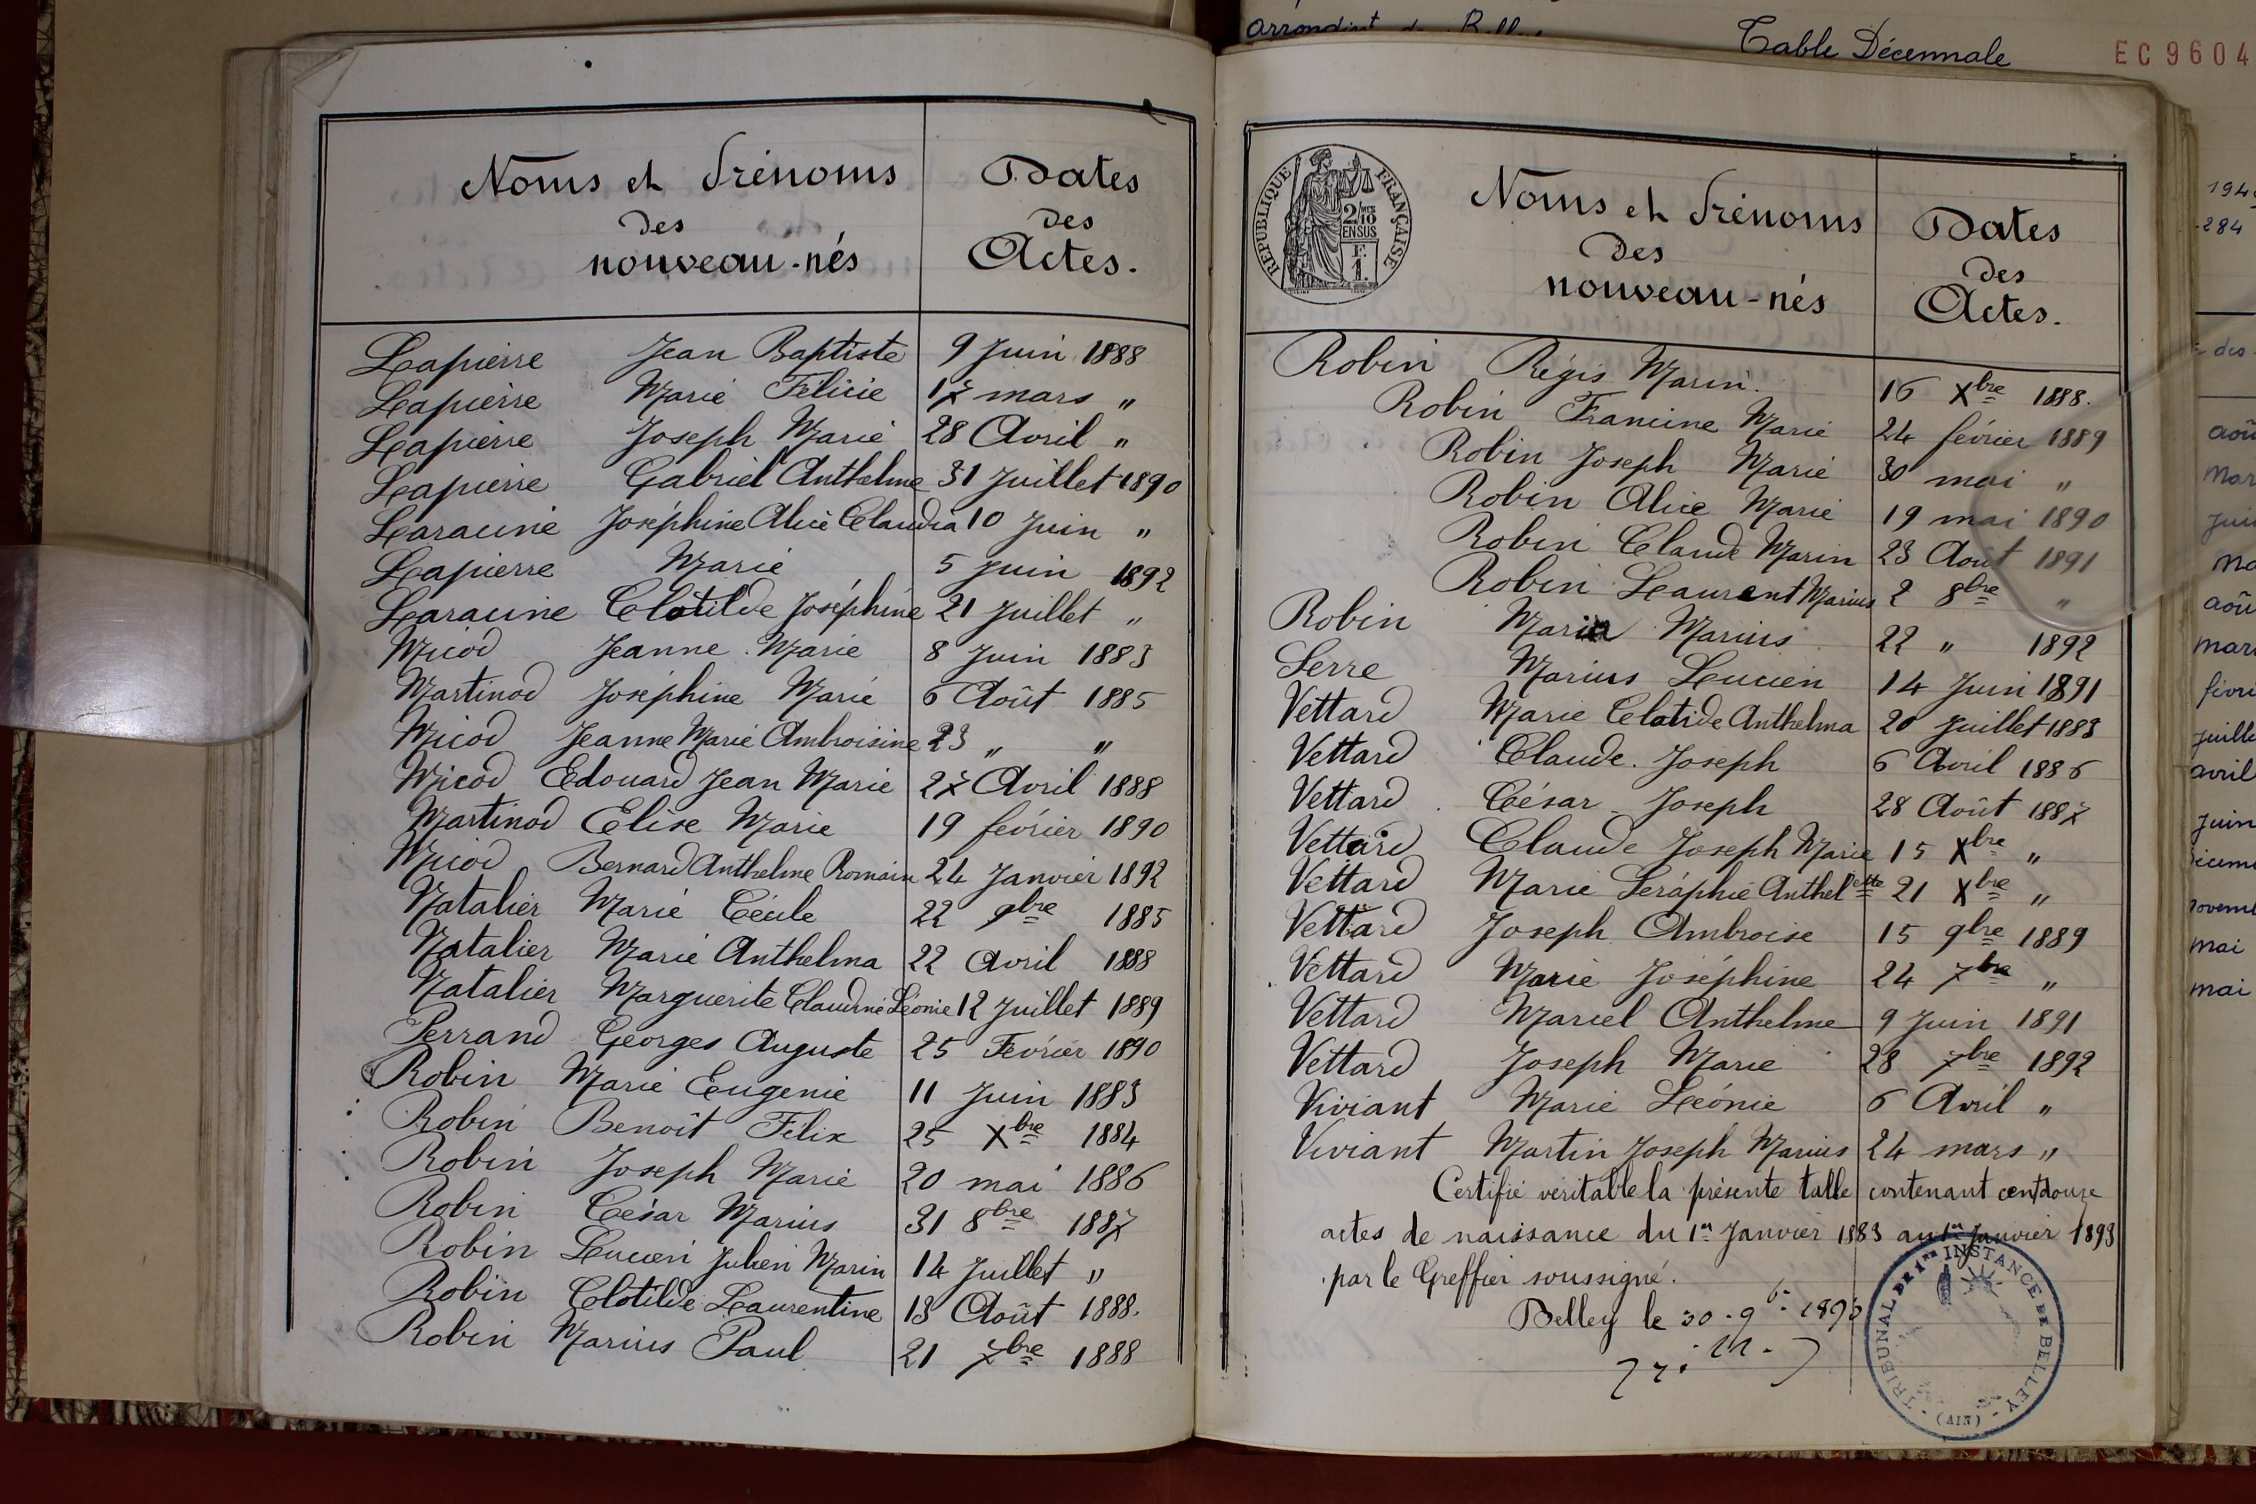 Noms et Prénoms
des
nouveau-nés
Dates
des
Actes.
Lapierre Jean Baptiste 9 Juin 1888
Lapierre Marie Félicie 17 mars "
Lapierre Joseph Marie 28 Avril "
Lapierre Gabriel Anthelme 31 Juillet 1890
Laracine Joséphine Alice Claudia 10 Juin "
Lapierre Marie 5 Juin 1892
Laracine Clotilde Joséphine 21 Juillet "
Micod Jeanne Marie 8 Juin 1883
Martinod Joséphine Marie 6 Août 1885
Micod Jeanne Marie Ambroisine 23 " "
Micod Edouard Jean Marie 27 Avril 1888
Martinod Elise Marie 19 février 1890
Micod Bernard Anthelme Romain 24 Janvier 1892
Natalier Marie Cécile 22 9bre 1885
Natalier Marie Anthelma 22 Avril 1888
Natalier Marguerite Claudine Léonie 12 Juillet 1889
Perrand Georges Auguste 25 Février 1890
Robin Marie Eugenie 11 Juin 1883
Robin Benoît Félix 25 Xbre 1884
Robin Joseph Marie 20 mai 1886
Robin César Marius 31 8bre 1887
Robin Lucien Julien Marin 14 Juillet "
Robin Clotilde Laurentine 13 Août 1888.
Robin Marius Paul 21 7bre 1888
arrondist de
Table Décennale
EC 9604
REPUBLIQUE FRANÇAISE
2/10
EN SUS
F.
1.
Noms et Prénoms
des
nouveau-nés
Dates
des
Actes.
Robin Régis Marin. 16 Xbre 1888.
Robin Francine Marie 24 février 1889
Robin Joseph Marie 30 mai "
Robin Alice Marie 19 mai 1890
Robin Claude Marin 23 Aout 1891
Robin Laurent Marius 2 8bre "
Robin Marius 22 " 1892
Serre Marius Lucien 14 Juin 1891
Vettard Marie Clotide Anthelma 20 Juillet 1883
Vettard Claude Joseph 6 Avril 1886
Vettard César Joseph 28 Août 1887
Vettard Claude Joseph Marie 15 Xbre "
Vettard Marie Seráphie Anthelette 21 Xbre "
Vettard Joseph Ambroise 15 9bre 1889
Vettard Marie Joséphine 24 7bre "
Vettard Marcel Anthelme 9 Juin 1891
Vettard Joseph Marie 28 7bre 1892
Viviant Marie Léonie 6 Avril "
Viviant Martin Joseph Marius 24 mars "
Certifié véritable la présente table contenant cent douze
actes de naissance du 1er Janvier 1883 au 1er Janvier 1893
par le Greffier soussigné.
Belley le 30 9b
TRIBUNAL DE 1re INSTANCE DE BELLEY
(AIN)
284
des
aoû
mar
juin
ma
aoû
mars
févri
juille
avril
juin
novem
mai
mai